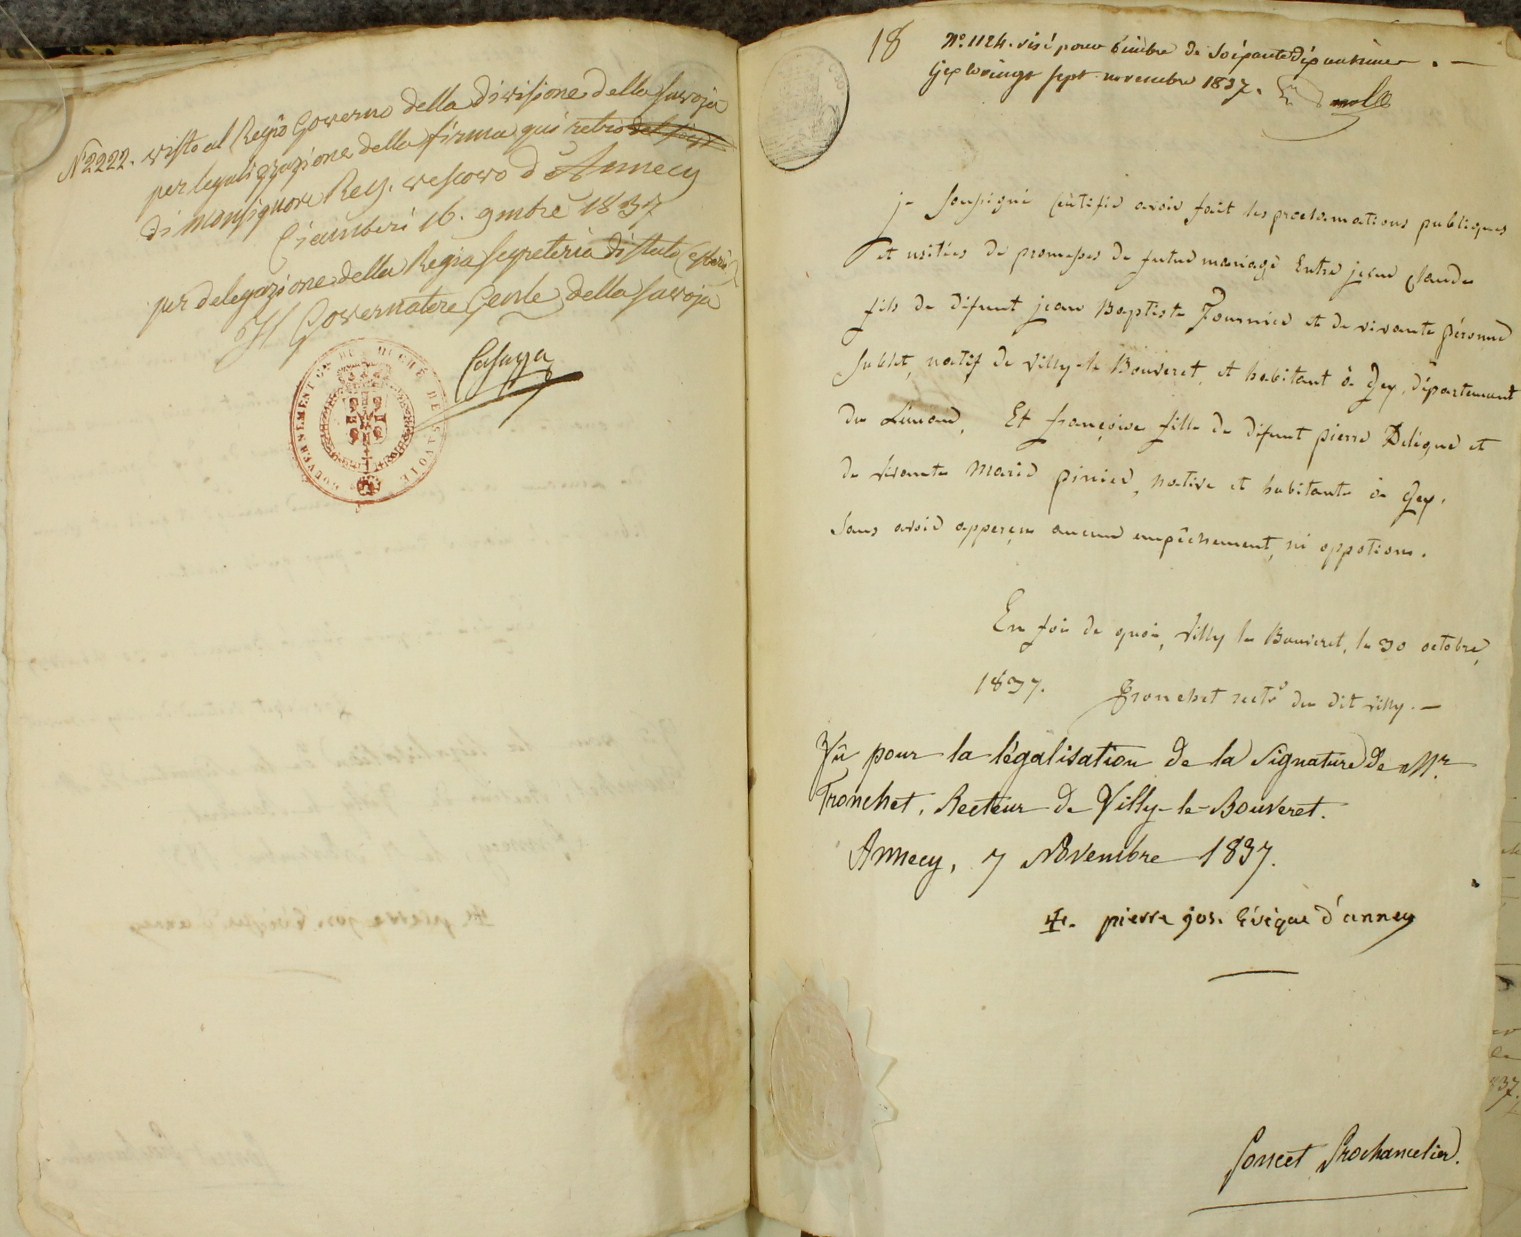 N 2222. visto al Regio Governo della divisione della savoja
per legalizzazione della firma qui retro
di monsignore Rey. vescovo d'Annecy
Ciamberì 16. 9mbre 1837
per delegazione della Regia segreteria di stato (esteri)
Il Governatore Gen.le della savoja
Casazza
GOUVERNEMENT DU DUCHÉ DE SAVOIE
18
N.º 1124. visé pour timbre de soixante dix centimes. —
Gex le vingt sept novembre 1837.
je soussigné certifie avoir fait les proclamations publiques
et usitées de promesses de futur mariage Entre jean claude
fils de défunt jean Baptiste Fournier et de vivante péronne
Sublet, natif de Villy-le Bouveret, et habitant à Gex, département
du Léman, Et françoise fille de défunt pierre Deléqué et
de vivante Marie pinier, native et habitante à Gex.
Sans avoir apperçu aucun empêchement, ni oppotions.
En foi de quoi, Villy le Bouveret, le 30 octobre,
1837. Tronchet rectr du dit Villy. —
Vû pour la légalisation de la Signature de Mr.
Tronchet, Recteur de Villy-le-Bouveret.
Annecy, 7 Novembre 1837.
+. pierre jos. Evêque d'annecy
Poncet Prochancelier.